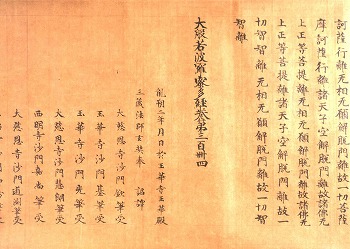 訶薩行離无相无願解脫門離故一切菩薩
摩訶薩行離諸天子空解脫門離故諸佛无
上正等菩提離无相无願解脫門離故諸佛无
上正等菩提離諸天子空解脫門離故一
切智智離无相无願解脫門離故一切智
智離
大般若波羅蜜多經卷第三百卌四
龍朔二年月日於玉華寺玉華殿
三藏法師玄奘奉 詔譯
大慈恩寺沙門欽筆受
玉華寺沙門基筆受
玉華寺沙門光筆受
大慈恩寺沙門慧朗筆受
西明寺沙門嘉尚筆受
大慈恩寺沙門道測筆受